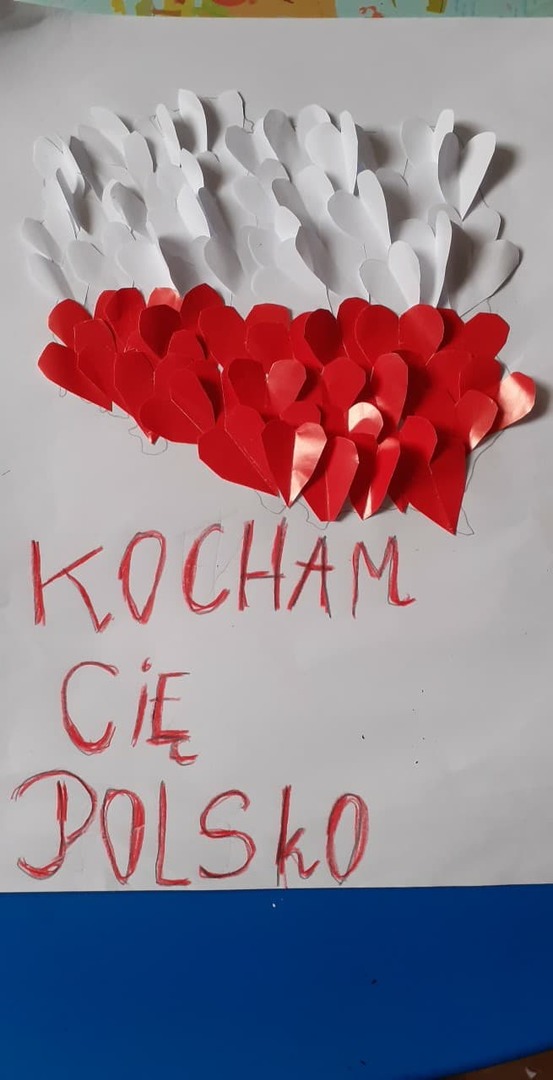 KOCHAM
CIĘ
POLSkO